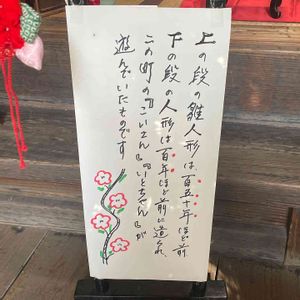 上の段の雛人形は百五十年ほど前
下の段の人形は百年ほど前に造られ
この町の『こいさん』『いとちゃん』が
遊んでいたものです